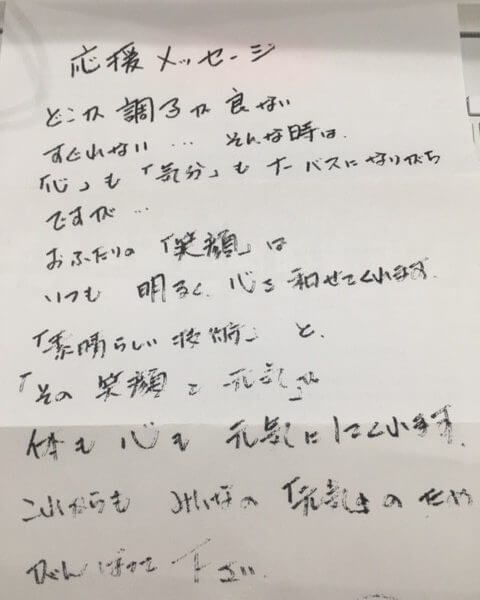 応援メッセージ
どこか調子が良ない
すぐれない… そんな時は、
「心」も「気分」もナーバスになりがち
ですが…
おふたりの「笑顔」は
いつも 明るく、心を和せてくれます。
「素晴らしい技術」と、
「その笑顔と元気」が
体も心も元気にしてくれます。
これからも みいなの「元気」の ため
がんばって下さい